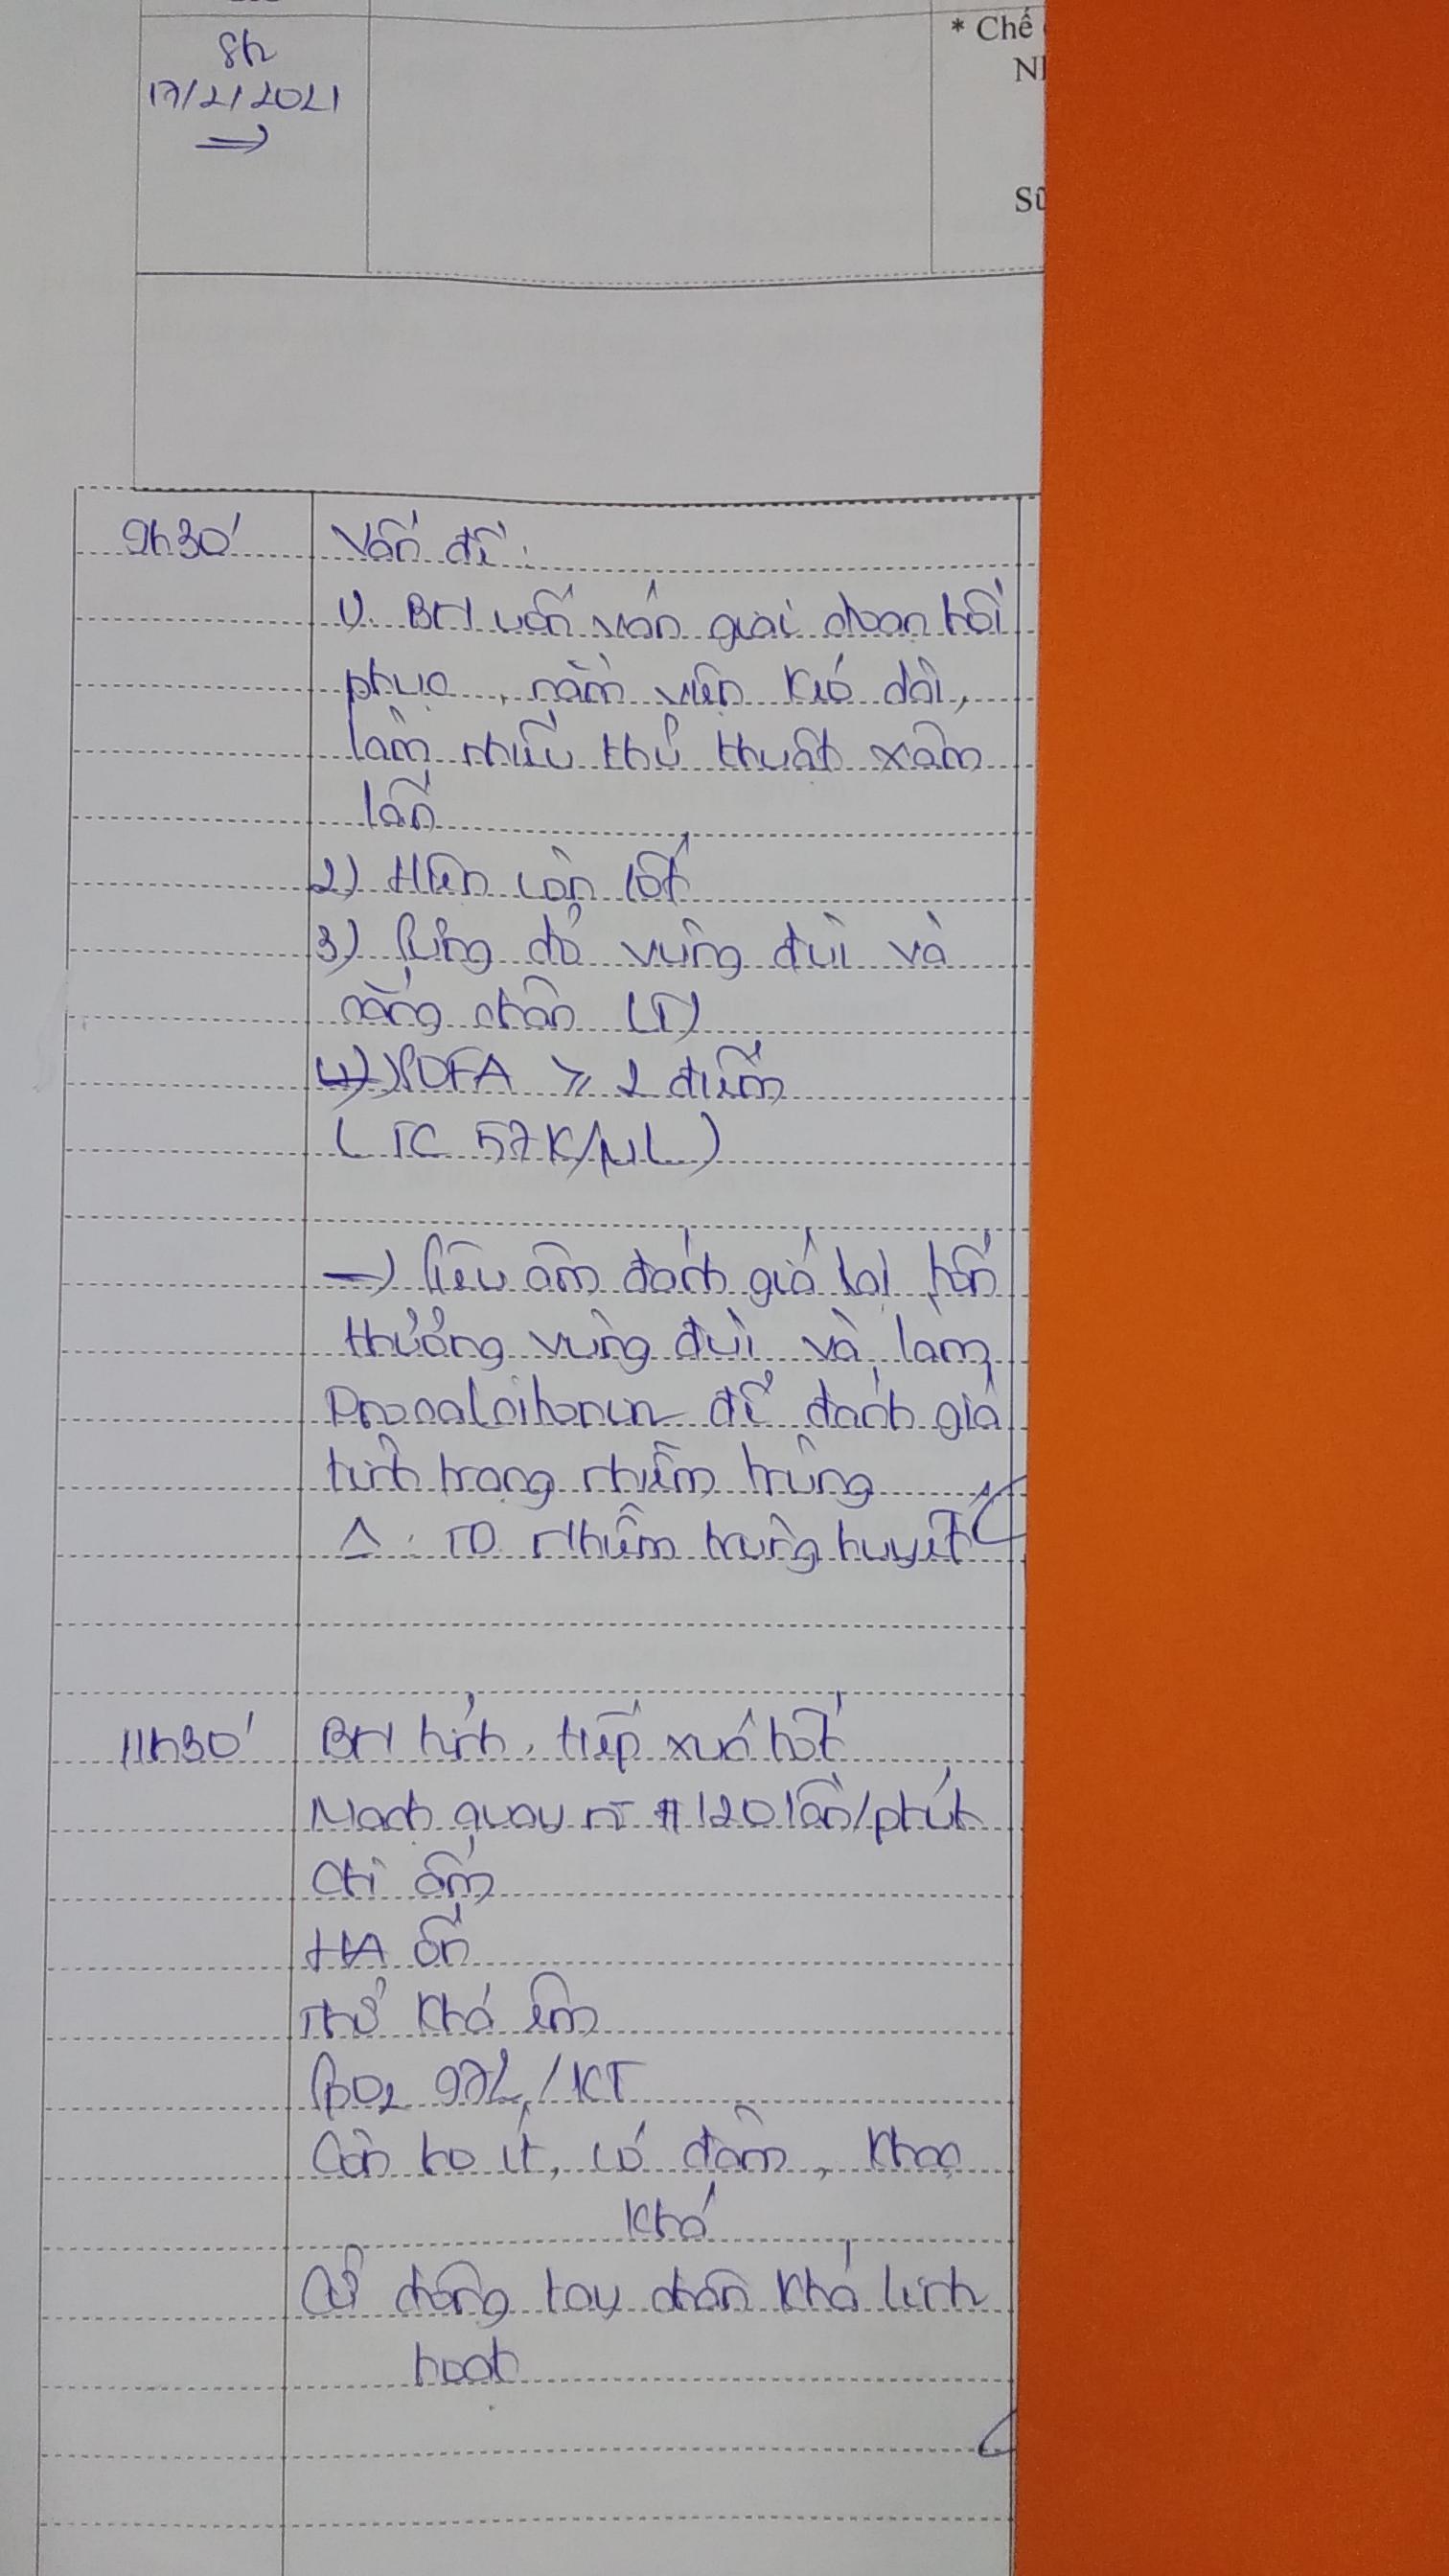 8h
* Chế
17/2/2021
Sữ
9h30'
Vấn đề:
1). BN uốn ván giai đoạn hồi
phục, nằm viện kéo dài,
làm nhiều thủ thuật xâm
lấn
2) Hiện còn sốt
3) Sưng đỏ vùng đùi và
cẳng chân (T)
4) SOFA ≥ 2 điểm
(TC 57K/µL)
→ Siêu âm đánh giá lại tổn
thương vùng đùi và làm
Procalcitonin để đánh giá
tình trạng nhiễm trùng
Δ: TD Nhiễm trùng huyết
11h30'
BN tỉnh, tiếp xúc tốt
Mạch quay rõ # 120 lần/phút
Chi ấm
HA ổn
Thở khá êm
SpO2 97%/KT
Còn ho ít, có đàm, khạc
khá
Cử động tay chân khá linh
hoạt